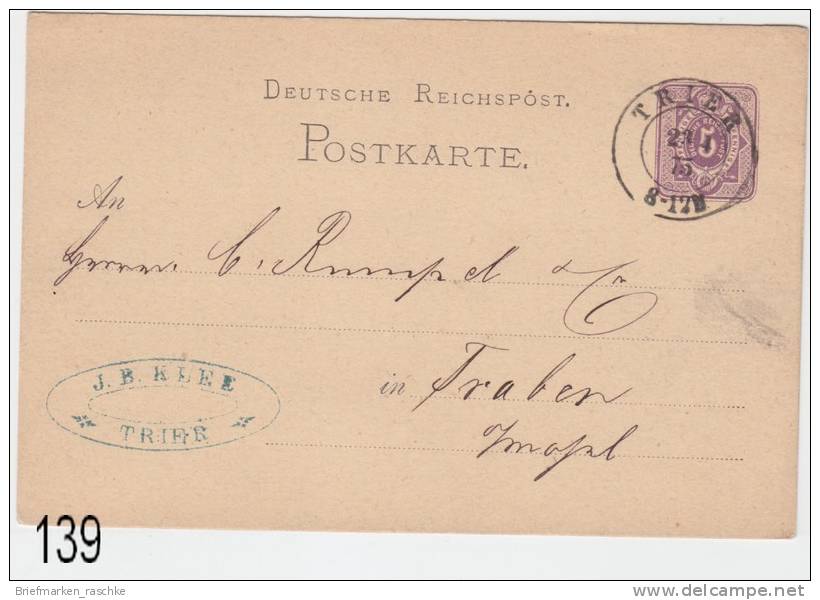 DEUTSCHE REICHSPOST.
POSTKARTE.
TRIER
5
75
8-12M
An
Herrn C. Rumpel & Co
J. B. KLEE
TRIER
in Traben
Mosel
139
Briefmarken_raschke
delcampe.net